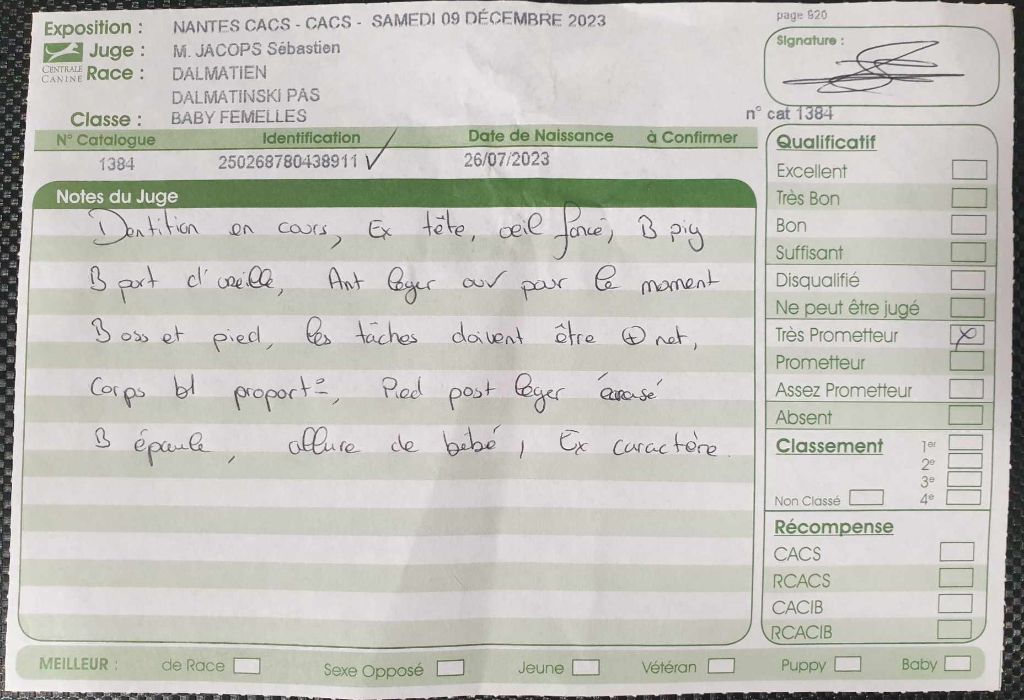 Exposition : NANTES CACS - CACS - SAMEDI 09 DÉCEMBRE 2023
page 920
Juge : M. JACOPS Sébastien
Signature :
CENTRALE CANINE
Race : DALMATIEN
DALMATINSKI PAS
Classe : BABY FEMELLES
n° cat 1384
N° Catalogue Identification Date de Naissance à Confirmer
1384 250268780438911 ✓ 26/07/2023
Notes du Juge
Dentition en cours, Ex tête, oeil foncé, B pig
B port d'oreille, Ant léger ouv pour le moment
B oss et pied, les tâches doivent être ⊕ net,
Corps bl proport=, Pied post léger écrasé
B épaule, allure de bébé, Ex caractère.
Qualificatif
Excellent
Très Bon
Bon
Suffisant
Disqualifié
Ne peut être jugé
Très Prometteur X
Prometteur
Assez Prometteur
Absent
Classement 1er
2e
3e
Non Classé 4e
Récompense
CACS
RCACS
CACIB
RCACIB
MEILLEUR : de Race Sexe Opposé Jeune Vétéran Puppy Baby